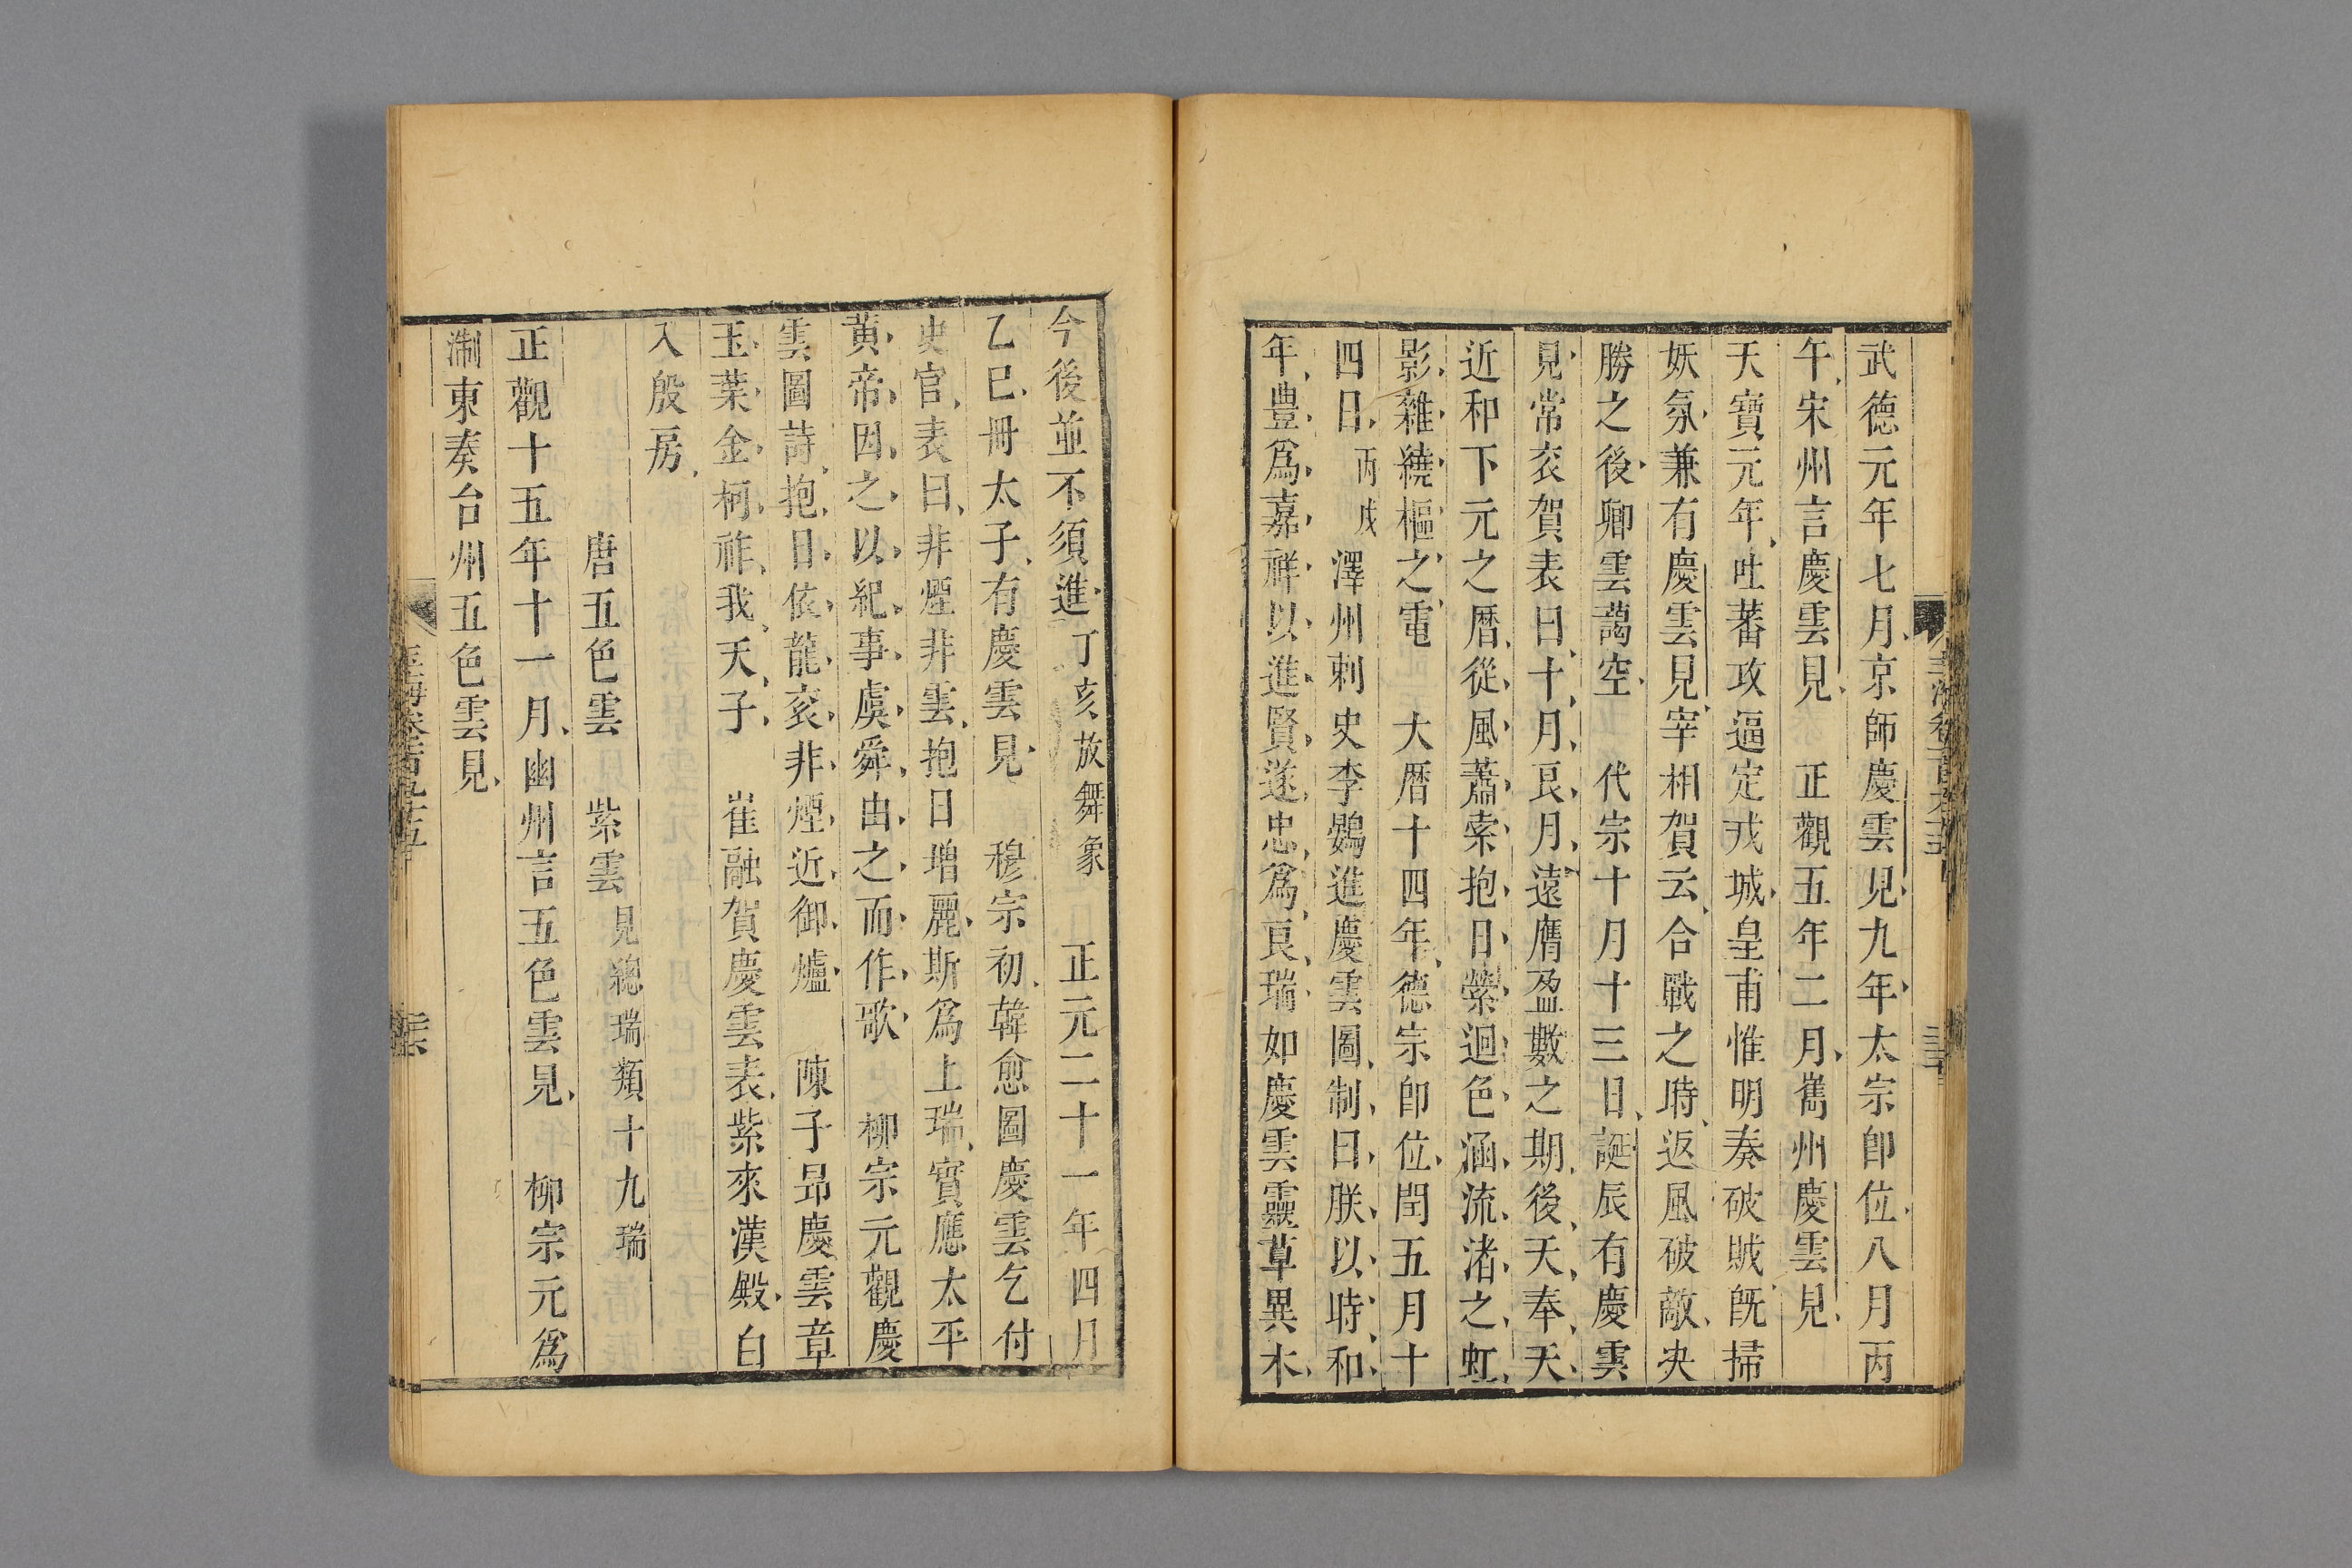 武德元年七月京師慶雲見九年太宗卽位八月丙
午宋州言慶雲見　正觀五年二月嶲州慶雲見
天寶元年吐蕃攻逼定戎城皇甫惟明奏破賊旣掃
妖氛兼有慶雲見宰相賀云合戰之時返風破敵决
勝之後卿雲藹空　代宗十月十三日誕辰有慶雲
見常衮賀表曰十月良月遠膺盈數之期後天奉天
近和下元之曆從風蕭索抱日縈迴色涵流渚之虹
影雜繞樞之電　大曆十四年德宗卽位閏五月十
四日丙戌澤州刺史李鷃進慶雲圖制曰朕以時和
年豊爲嘉祥以進賢遂忠爲良瑞如慶雲靈草異木
今後並不須進丁亥放舞象　正元二十一年四月
乙巳冊太子有慶雲見　穆宗初韓愈圖慶雲乞付
史官表曰非煙非雲抱日增麗斯爲上瑞實應太平
黄帝因之以紀事虞舜由之而作歌　柳宗元觀慶
雲圖詩抱日依龍衮非煙近御爐　陳子昂慶雲章
玉葉金柯祚我天子　崔融賀慶雲表紫來漢殿白
入殷房
唐五色雲　紫雲見總瑞類十九瑞
正觀十五年十一月幽州言五色雲見　柳宗元爲
淛東奏台州五色雲見